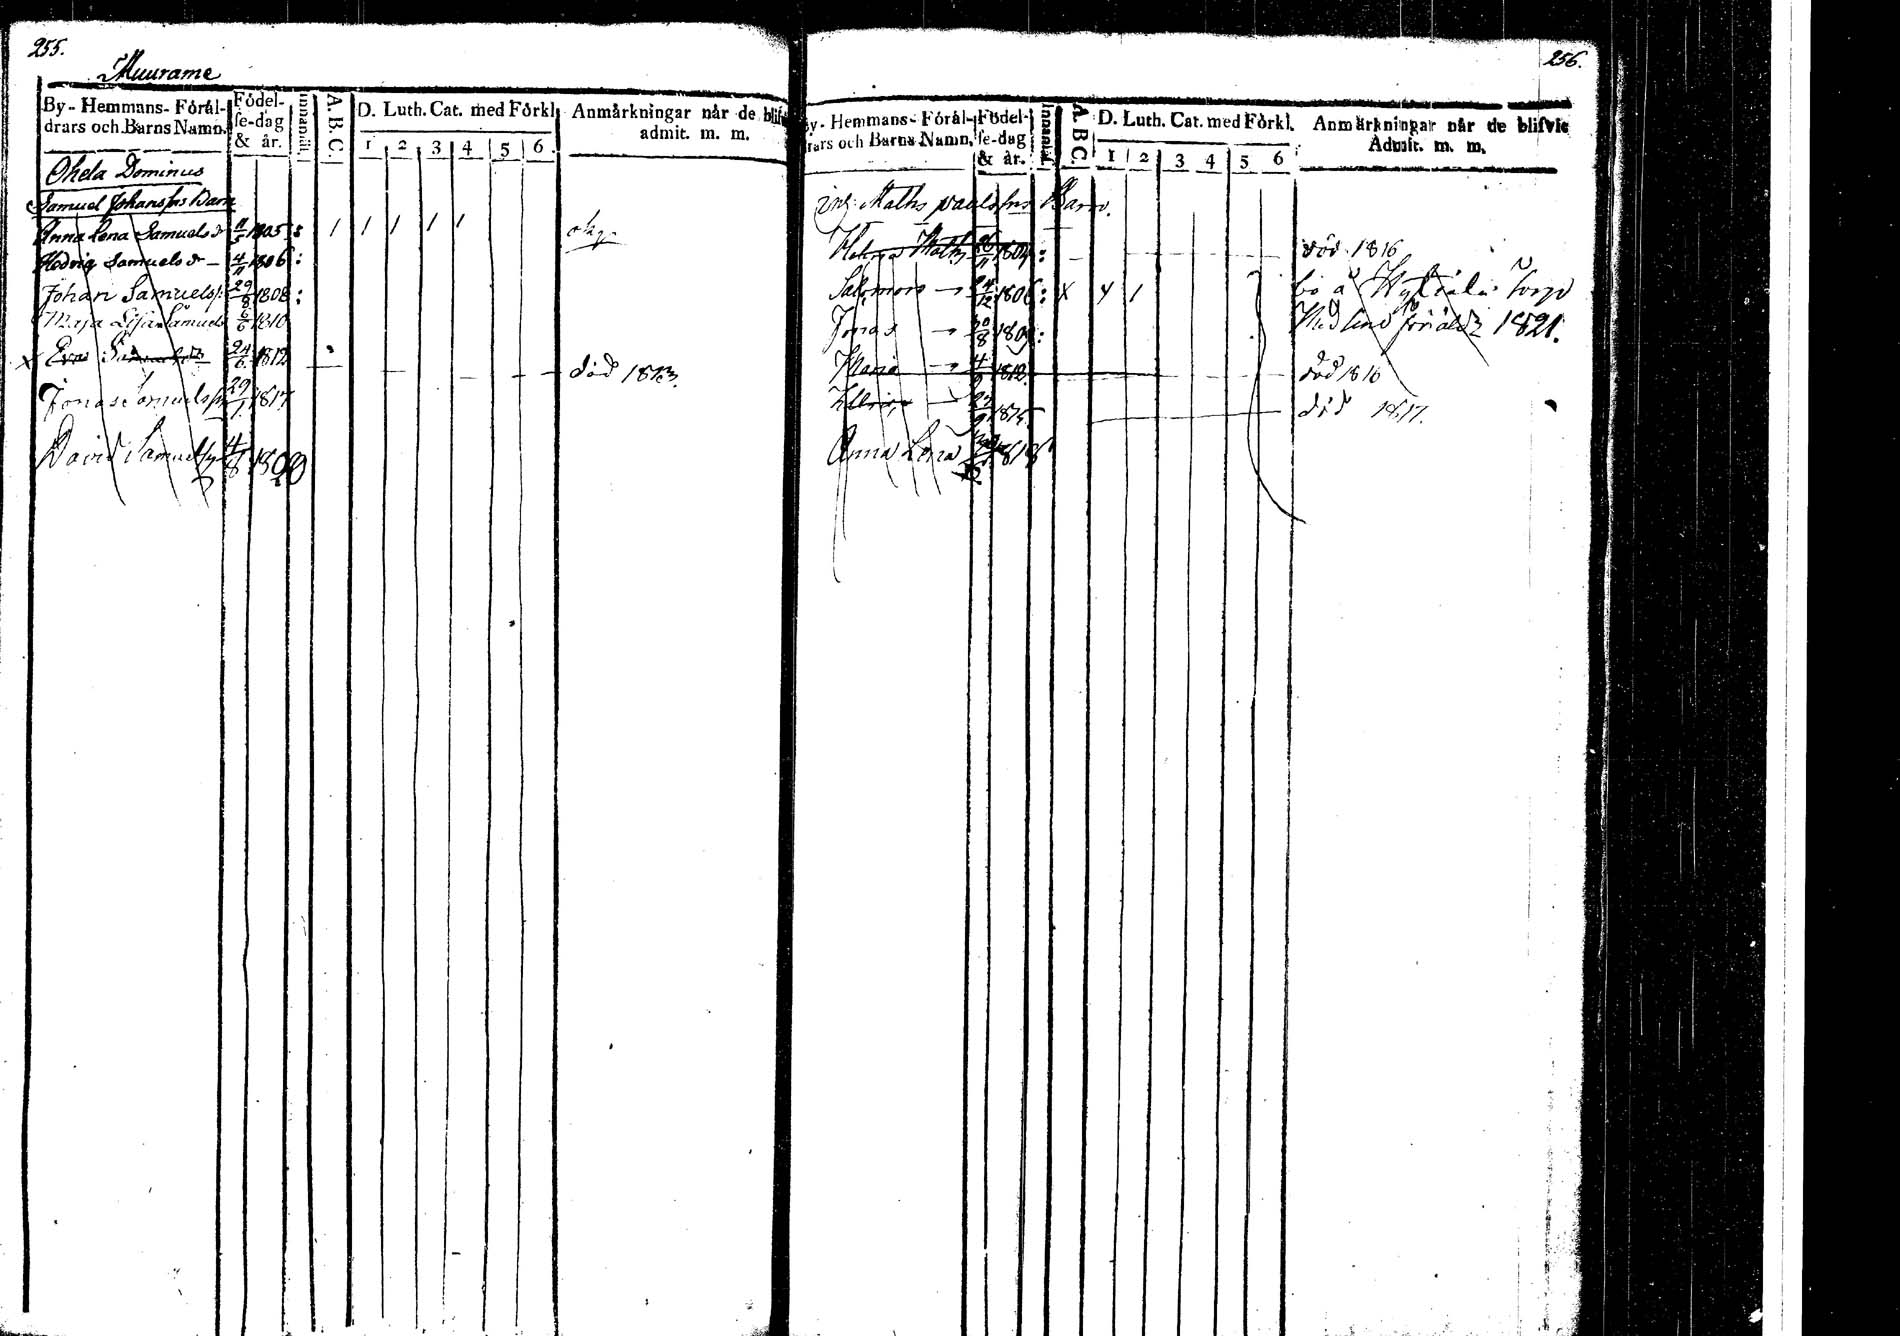 255.
Muurame
By- Hemmans- Föräl-
drars och Barns Namn.
Födel-
se-dag
& år.
Innanläs.
A. B. C.
D. Luth. Cat. med Förkl.
1 2 3 4 5 6.
Anmärkningar når de blifv
admit. m. m.
Ohela Dominus
Samuel Johanss:ns Barn
Anna Lena Samuelsdr 11/5 1805 : 1 1 1 1 1
Hedvig Samuelsdr – 4/11 1806 :
Johan Samuelss: 29/8 1808 :
Maja Lisa Samuelsd 6/6 1810
x Eva Samuelsdr 24/6 1812 död 1813.
Jonas Samuelss:n 29/1 1817
David Samuels 4/8 1820
256.
By- Hemmans- Föräl-
rars och Barns Namn.
Födel-
se-dag
& år.
Innanläs.
A. B. C.
D. Luth. Cat. med Förkl.
1 2 3 4 5 6
Anmärkningar når de blifvit
Admit. m. m.
Maths paulss:ns Barn.
Helena Maths 26/11 1804 : död 1816
Salomon 24/12 1806 : x 4 1 bo å Torp
Jonas 30/8 1809 : Med sina föräldr 1821.
Maria 4/9 1812. död 1816
1815. död 1817.
Anna Lena 1818